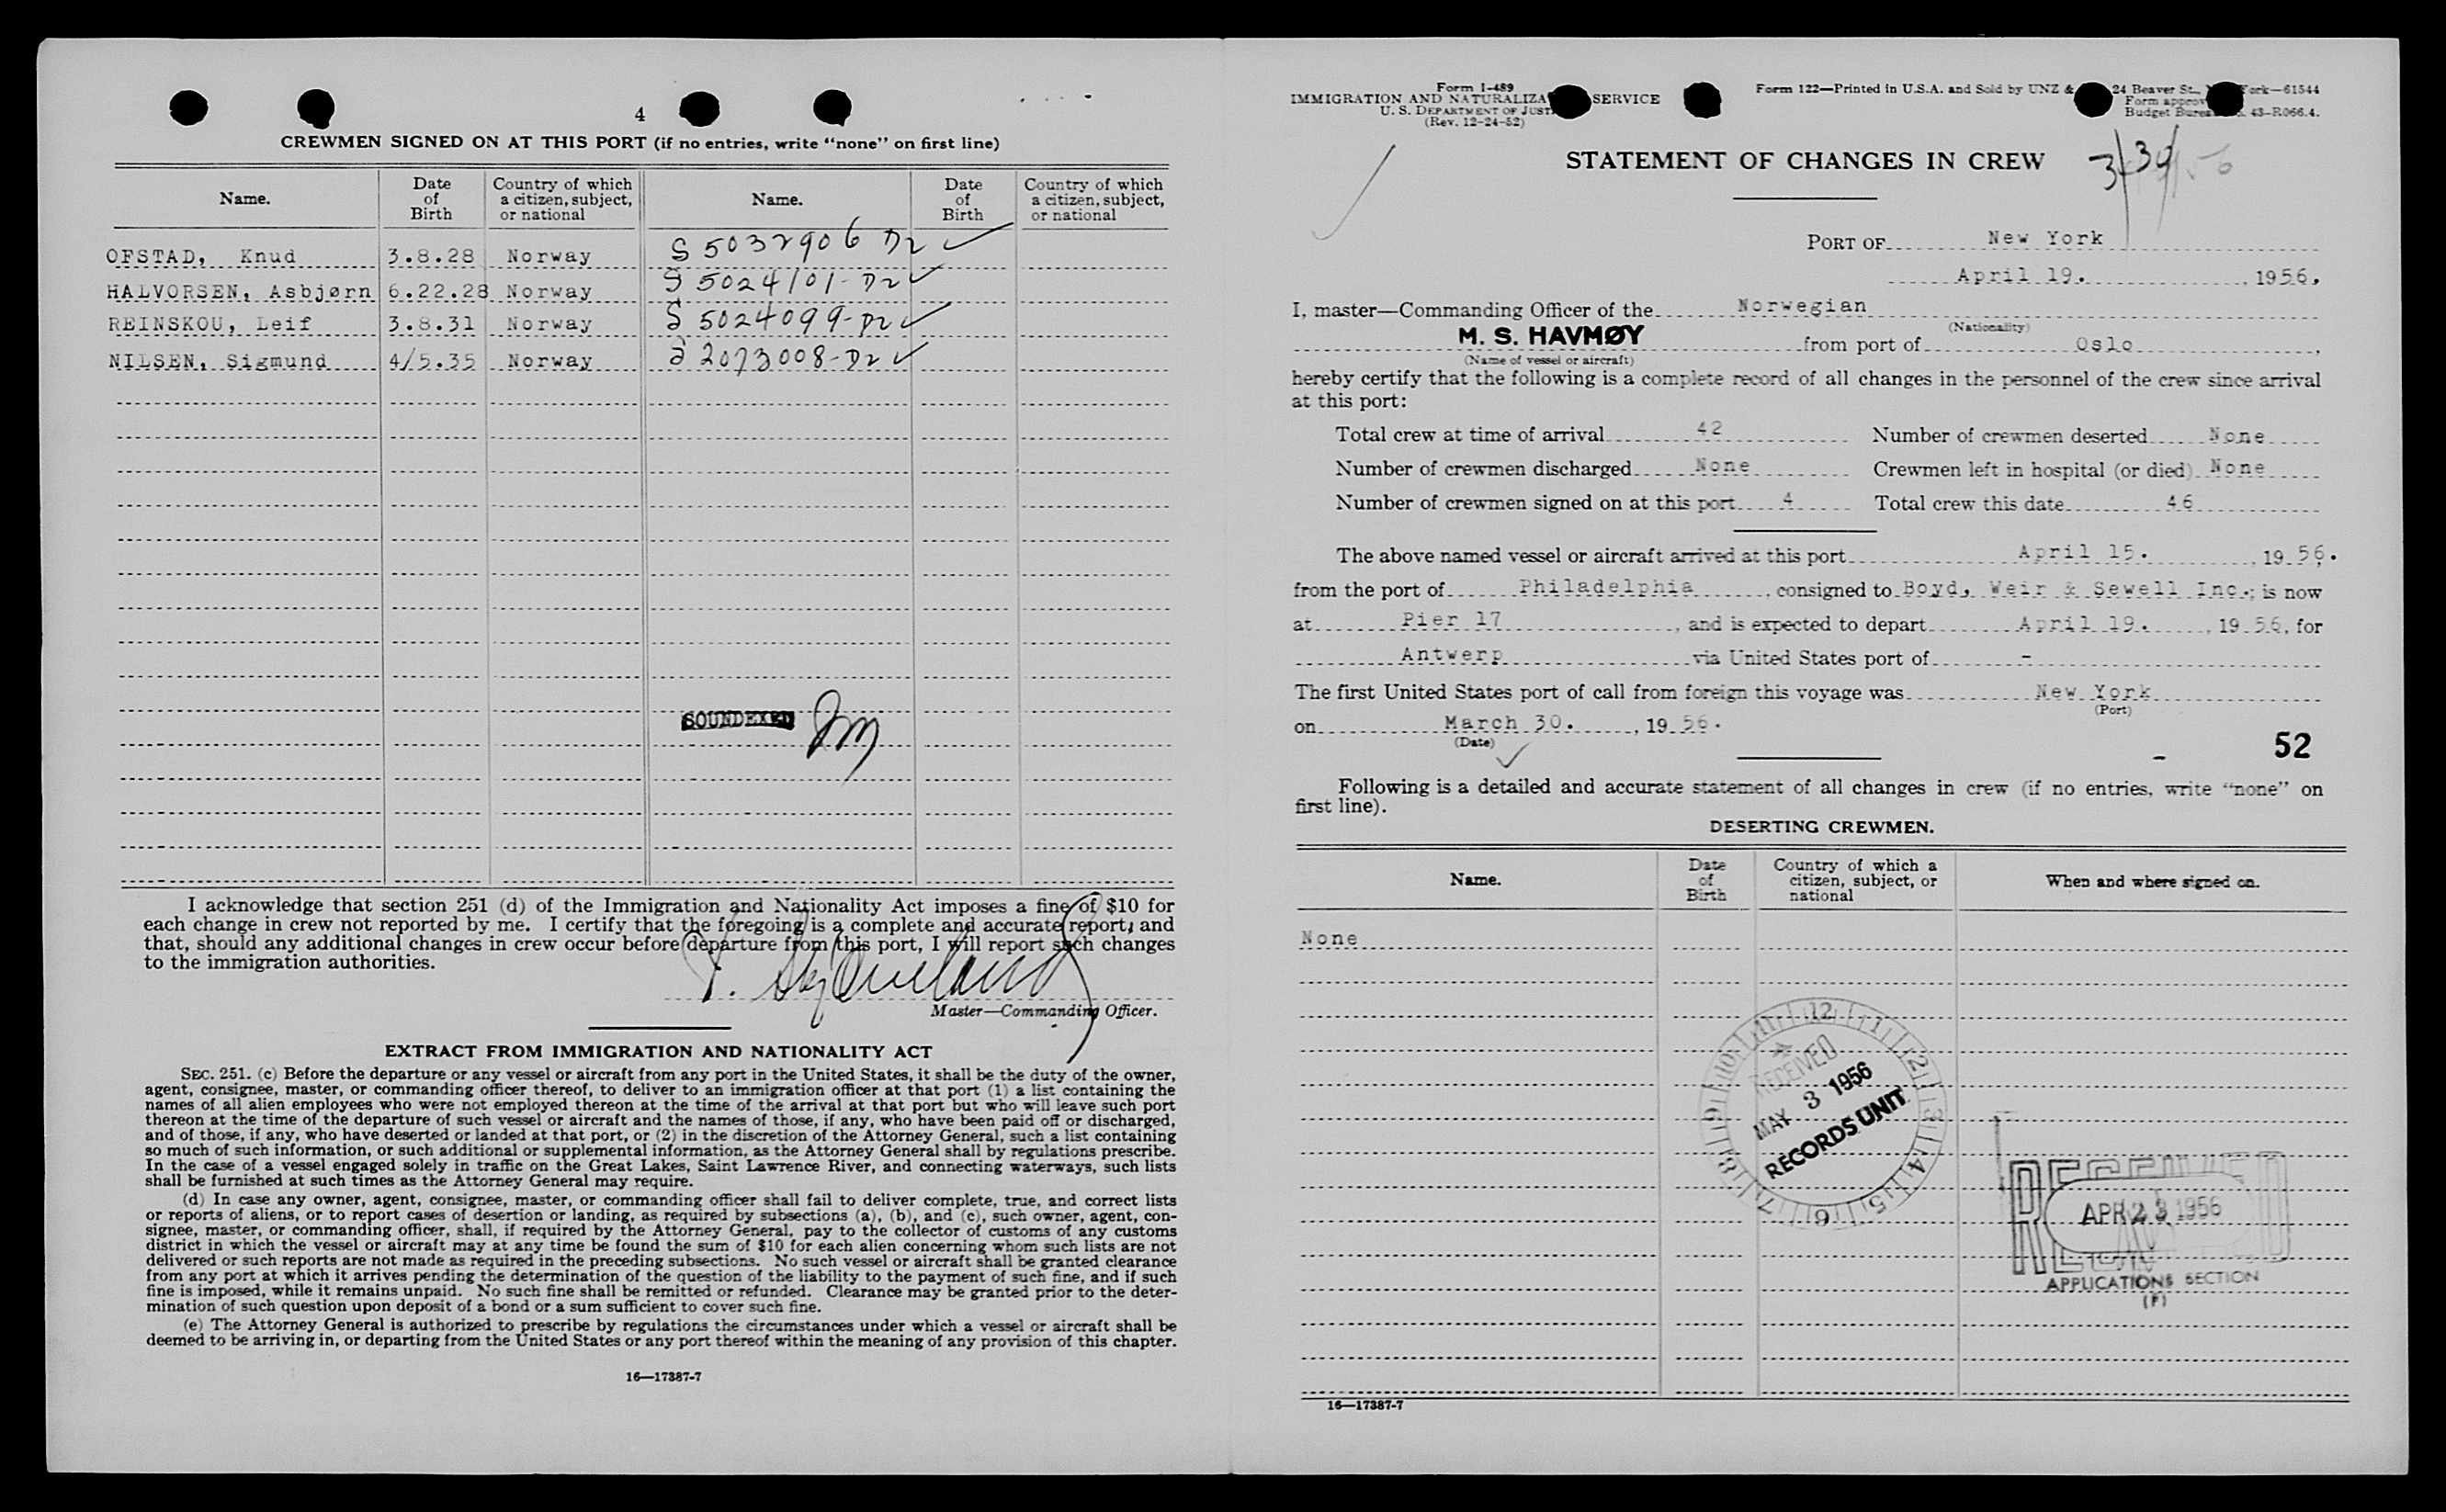 4
CREWMEN SIGNED ON AT THIS PORT (if no entries, write “none” on first line)
Name. Date of Birth Country of which a citizen, subject, or national Name. Date of Birth Country of which a citizen, subject, or national
OFSTAD, Knud 3.8.28 Norway S 5032906 D2 ✓
HALVORSEN, Asbjørn 6.22.28 Norway S 5024101-D2 ✓
REINSKOU, Leif 3.8.31 Norway S 5024099-D2 ✓
NILSEN, Sigmund 4/5.35 Norway S 2073008-D2 ✓
SOUNDEXED
I acknowledge that section 251 (d) of the Immigration and Nationality Act imposes a fine of $10 for
each change in crew not reported by me. I certify that the foregoing is a complete and accurate report; and
that, should any additional changes in crew occur before departure from this port, I will report such changes
to the immigration authorities.
Master—Commanding Officer.
EXTRACT FROM IMMIGRATION AND NATIONALITY ACT
SEC. 251. (c) Before the departure or any vessel or aircraft from any port in the United States, it shall be the duty of the owner,
agent, consignee, master, or commanding officer thereof, to deliver to an immigration officer at that port (1) a list containing the
names of all alien employees who were not employed thereon at the time of the arrival at that port but who will leave such port
thereon at the time of the departure of such vessel or aircraft and the names of those, if any, who have been paid off or discharged,
and of those, if any, who have deserted or landed at that port, or (2) in the discretion of the Attorney General, such a list containing
so much of such information, or such additional or supplemental information, as the Attorney General shall by regulations prescribe.
In the case of a vessel engaged solely in traffic on the Great Lakes, Saint Lawrence River, and connecting waterways, such lists
shall be furnished at such times as the Attorney General may require.
(d) In case any owner, agent, consignee, master, or commanding officer shall fail to deliver complete, true, and correct lists
or reports of aliens, or to report cases of desertion or landing, as required by subsections (a), (b), and (c), such owner, agent, con-
signee, master, or commanding officer, shall, if required by the Attorney General, pay to the collector of customs of any customs
district in which the vessel or aircraft may at any time be found the sum of $10 for each alien concerning whom such lists are not
delivered or such reports are not made as required in the preceding subsections. No such vessel or aircraft shall be granted clearance
from any port at which it arrives pending the determination of the question of the liability to the payment of such fine, and if such
fine is imposed, while it remains unpaid. No such fine shall be remitted or refunded. Clearance may be granted prior to the deter-
mination of such question upon deposit of a bond or a sum sufficient to cover such fine.
(e) The Attorney General is authorized to prescribe by regulations the circumstances under which a vessel or aircraft shall be
deemed to be arriving in, or departing from the United States or any port thereof within the meaning of any provision of this chapter.
16—17387-7
Form I-489
IMMIGRATION AND NATURALIZA SERVICE
U. S. DEPARTMENT OF JUST
(Rev. 12-24-52)
Form 122—Printed in U.S.A. and Sold by UNZ & 24 Beaver St., ork—61544
Form approv
Budget Burea 43-R066.4.
STATEMENT OF CHANGES IN CREW
3/30/56
PORT OF New York
April 19. , 1956.
I, master—Commanding Officer of the Norwegian
(Nationality)
M. S. HAVMØY from port of Oslo,
(Name of vessel or aircraft)
hereby certify that the following is a complete record of all changes in the personnel of the crew since arrival
at this port:
Total crew at time of arrival 42 Number of crewmen deserted None
Number of crewmen discharged None Crewmen left in hospital (or died) None
Number of crewmen signed on at this port 4 Total crew this date 46
The above named vessel or aircraft arrived at this port April 15. , 19 56.
from the port of Philadelphia, consigned to Boyd, Weir & Sewell Inc.; is now
at Pier 17, and is expected to depart April 19. , 19 56, for
Antwerp via United States port of -
The first United States port of call from foreign this voyage was New York
(Port)
on March 30. , 19 56.
(Date)
52
Following is a detailed and accurate statement of all changes in crew (if no entries, write “none” on
first line).
DESERTING CREWMEN.
Name. Date of Birth Country of which a citizen, subject, or national When and where signed on.
None
12 1 2 3 4 5 6 7 8 9 10 11
RECEIVED
MAY 3 1956
RECORDS UNIT
RECEIVED
APR 23 1956
APPLICATIONS SECTION
(F)
16—17387-7